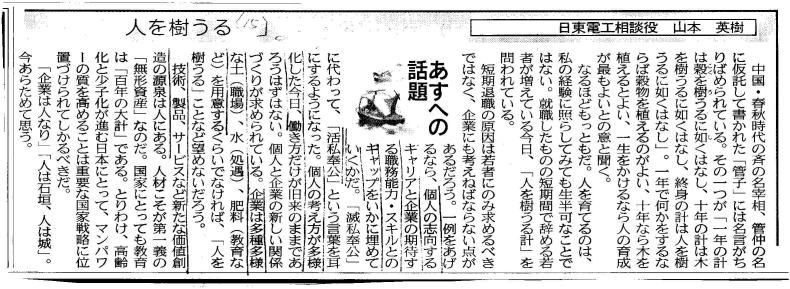 人を樹うる
日東電工相談役 山本 英樹
あすへの
話題
中国・春秋時代の斉の名宰相、管仲の名
に仮託して書かれた「管子」には名言がち
りばめられている。その一つが「一年の計
は穀を樹うるに如くはなし、十年の計は木
を樹うるに如くはなし、終身の計は人を樹
うるに如くはなし」。一年で何かをするな
らば穀物を植えるのがよい、十年なら木を
植えるとよい、一生をかけるなら人の育成
が最もよいとの意と聞く。
なるほどもっともだ。人を育てるのは、
私の経験に照らしてみても生半可なことで
はない。就職したものの短期間で辞める若
者が増えている今日、「人を樹うる計」を
問われている。
短期退職の原因は若者にのみ求めるべき
ではなく、企業にも考えねばならない点が
あるだろう。一例をあげ
るなら、個人の志向する
キャリアと企業の期待す
る職務能力・スキルとの
ギャップをいかに埋めて
いくかだ。「滅私奉公」
に代わって、「活私奉公」という言葉を耳
にするようになった。個人の考え方が多様
化した今日、働き方だけが旧来のままであ
ろうはずはない。個人と企業の新しい関係
づくりが求められている。企業は多種多様
な土（職場）、水（処遇）、肥料（教育な
ど）を用意するくらいでなければ、「人を
樹うる」ことなど望めないだろう。
技術、製品、サービスなど新たな価値創
造の源泉は人にある。人材こそが第一義の
「無形資産」なのだ。国家にとっても教育
は「百年の大計」である。とりわけ、高齢
化と少子化が進む日本にとって、マンパワ
ーの質を高めることは重要な国家戦略に位
置づけられてしかるべきだ。
「企業は人なり」「人は石垣、人は城」。
今あらためて思う。